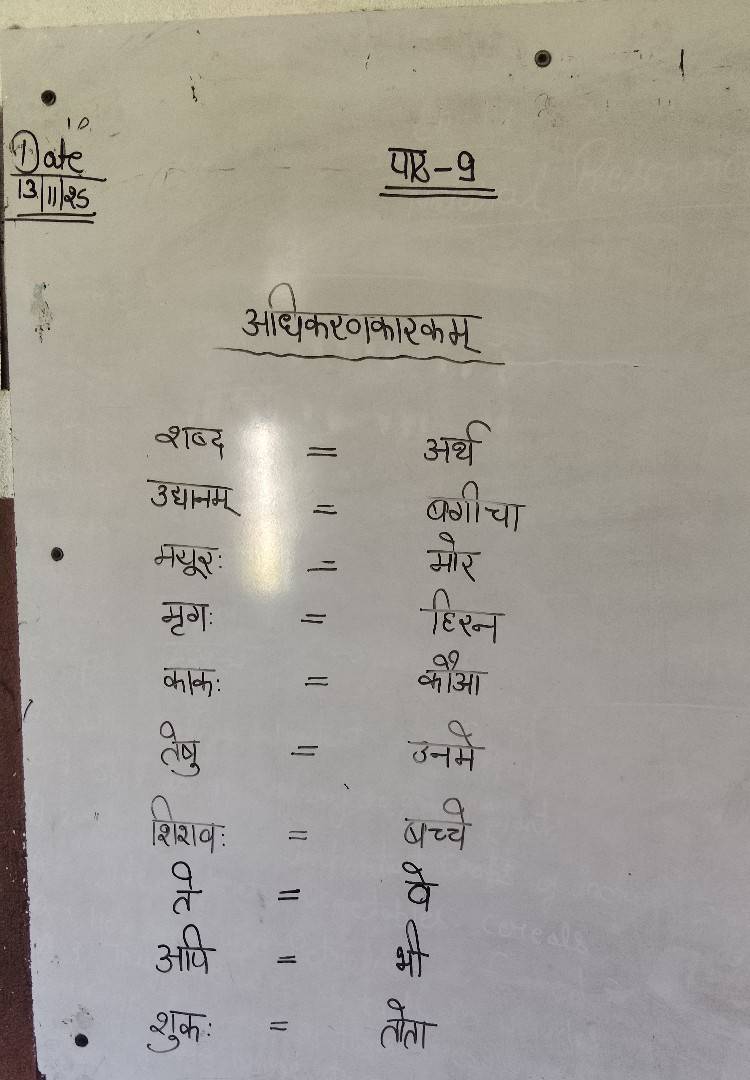 Date
13/11/25
पाठ-9
अधिकरणकारकम्
शब्द = अर्थ
उद्यानम् = बगीचा
मयूरः = मोर
मृगः = हिरन
काकः = कौआ
तेषु = उनमे
शिशवः = बच्चे
ते = वे
अपि = भी
शुकः = तोता